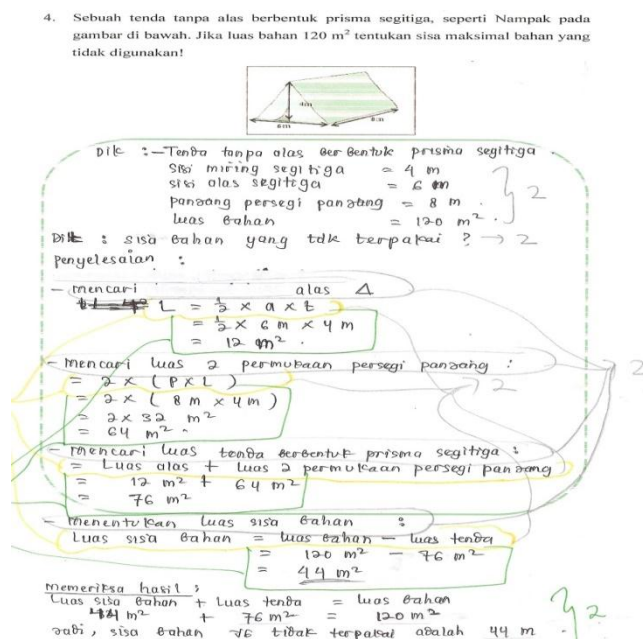 4. Sebuah tenda tanpa alas berbentuk prisma segitiga, seperti Nampak pada
gambar di bawah. Jika luas bahan 120 m² tentukan sisa maksimal bahan yang
tidak digunakan!
4m
6m
8m
Dik : - Tenda tanpa alas berbentuk prisma segitiga
sisi miring segitiga = 4 m
sisi alas segitiga = 6 m
panjang persegi panjang = 8 m
luas bahan = 120 m².
2
Dit : sisa bahan yang tdk terpakai ? → 2
penyelesaian :
- mencari alas Δ
L = ½ x a x t
= ½ x 6 m x 4 m
= 12 m².
- mencari luas 2 permukaan persegi panjang :
= 2 x (P x L)
= 2 x ( 8 m x 4 m )
= 2 x 32 m²
= 64 m².
2
2
- mencari luas tenda berbentuk prisma segitiga :
= Luas alas + luas 2 permukaan persegi panjang
= 12 m² + 64 m²
= 76 m²
- Menentukan luas sisa bahan :
Luas sisa bahan = luas bahan - luas tenda
= 120 m² - 76 m²
= 44 m²
memeriksa hasil :
Luas sisa bahan + Luas tenda = luas bahan
44 m² + 76 m² = 120 m²
Jadi, sisa bahan yg tidak terpakai adalah 44 m
2